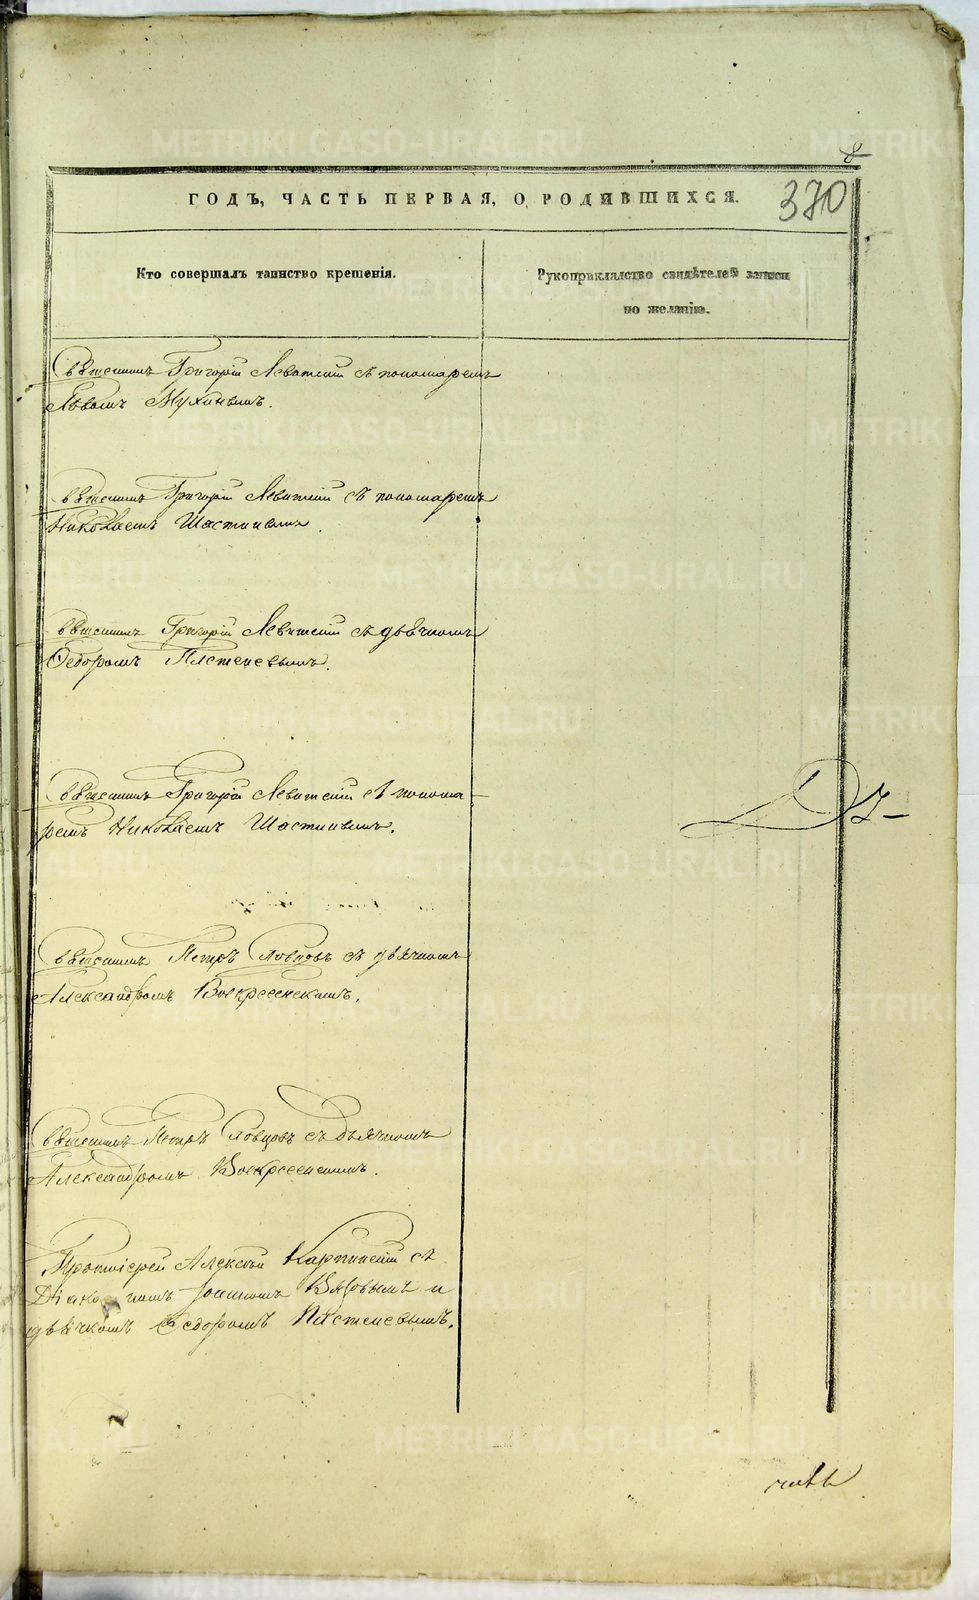 8
370
ГОДЪ, ЧАСТЬ ПЕРВАЯ, О РОДИВШИХСЯ.
Кто совершалъ таинство крещенія.
Рукоприкладство свидѣтелей записи
по желанію.
Священникъ Григорій Левитскій съ пономаремъ
Львомъ Мухинымъ.
Священникъ Григорій Левитскій съ пономаремъ
Николаемъ
Священникъ Григорій Левитскій съ дьячкомъ
Ѳедоромъ
Священникъ Григорій Левитскій съ понома-
ремъ Николаемъ
Священникъ Петръ Словцовъ съ дьячкомъ
Александромъ Воскресенскимъ.
Священникъ Петръ Словцовъ съ дьячкомъ
Александромъ Воскресенскимъ.
Протоіерей Алексѣй Карпинскій съ
Діакономъ Іоанномъ и
дьячкомъ Ѳедоромъ
METRIKI.GASO-URAL.RU